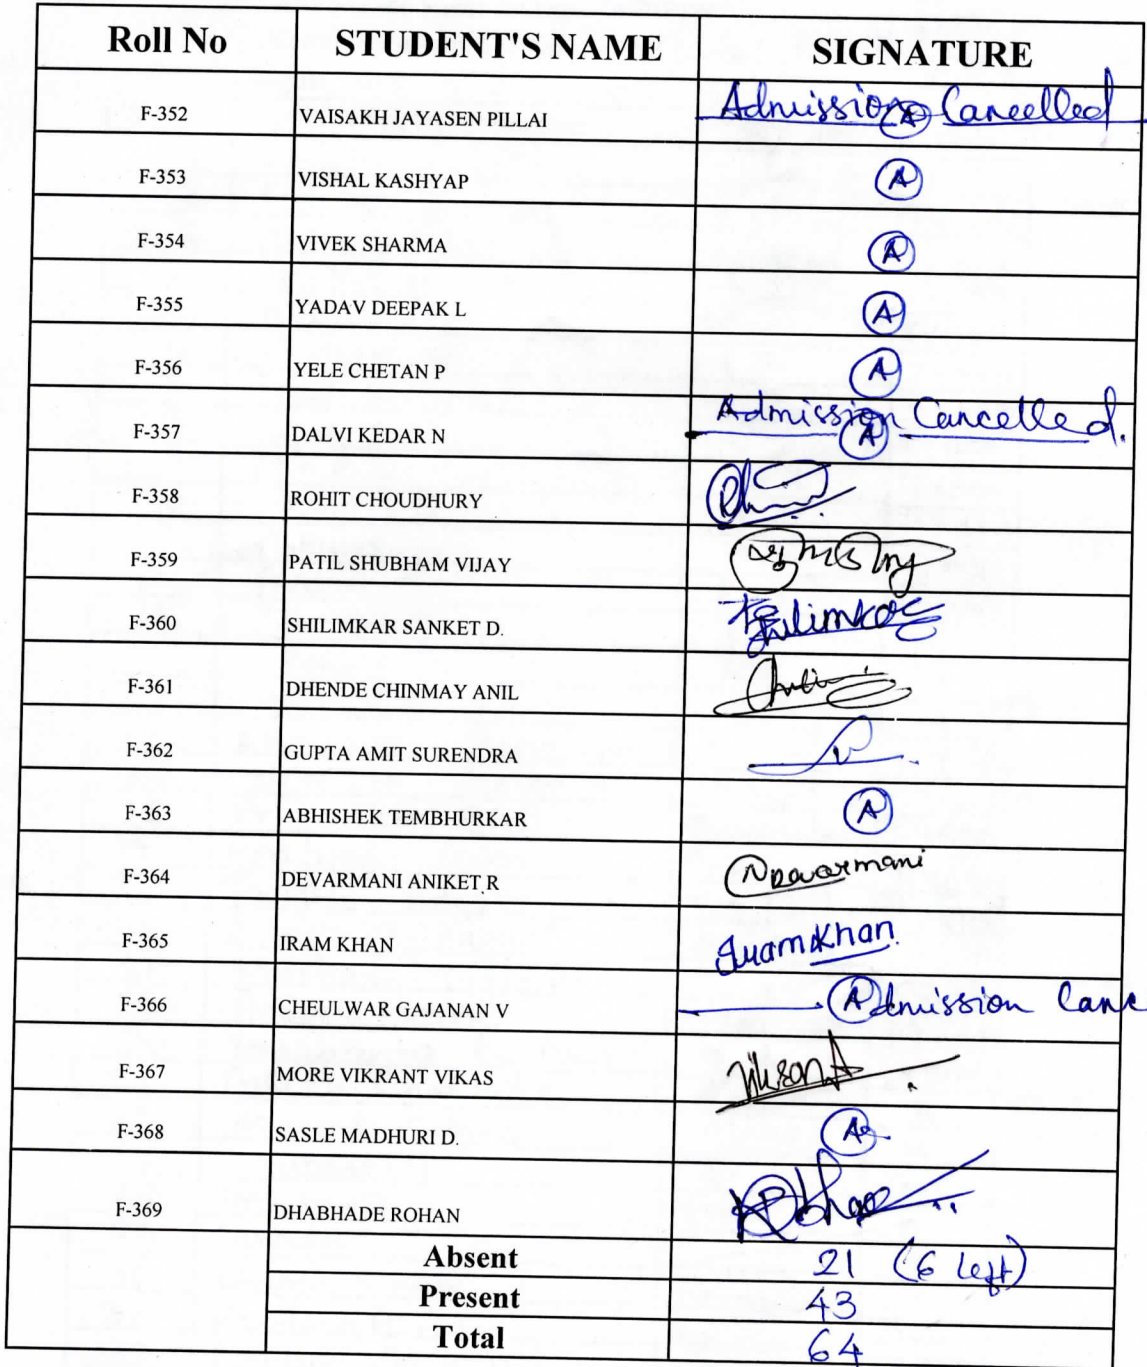 Roll No STUDENT'S NAME SIGNATURE
F-352 VAISAKH JAYASEN PILLAI Admission Cancelled A
F-353 VISHAL KASHYAP A
F-354 VIVEK SHARMA A
F-355 YADAV DEEPAK L A
F-356 YELE CHETAN P A
F-357 DALVI KEDAR N Admission Cancelled. A
F-358 ROHIT CHOUDHURY
F-359 PATIL SHUBHAM VIJAY
F-360 SHILIMKAR SANKET D. Shilimkar
F-361 DHENDE CHINMAY ANIL
F-362 GUPTA AMIT SURENDRA
F-363 ABHISHEK TEMBHURKAR A
F-364 DEVARMANI ANIKET R Devarmani
F-365 IRAM KHAN Iram Khan
F-366 CHEULWAR GAJANAN V Admission Canc
F-367 MORE VIKRANT VIKAS
F-368 SASLE MADHURI D. A
F-369 DHABHADE ROHAN
Absent 21 (6 left)
Present 43
Total 64